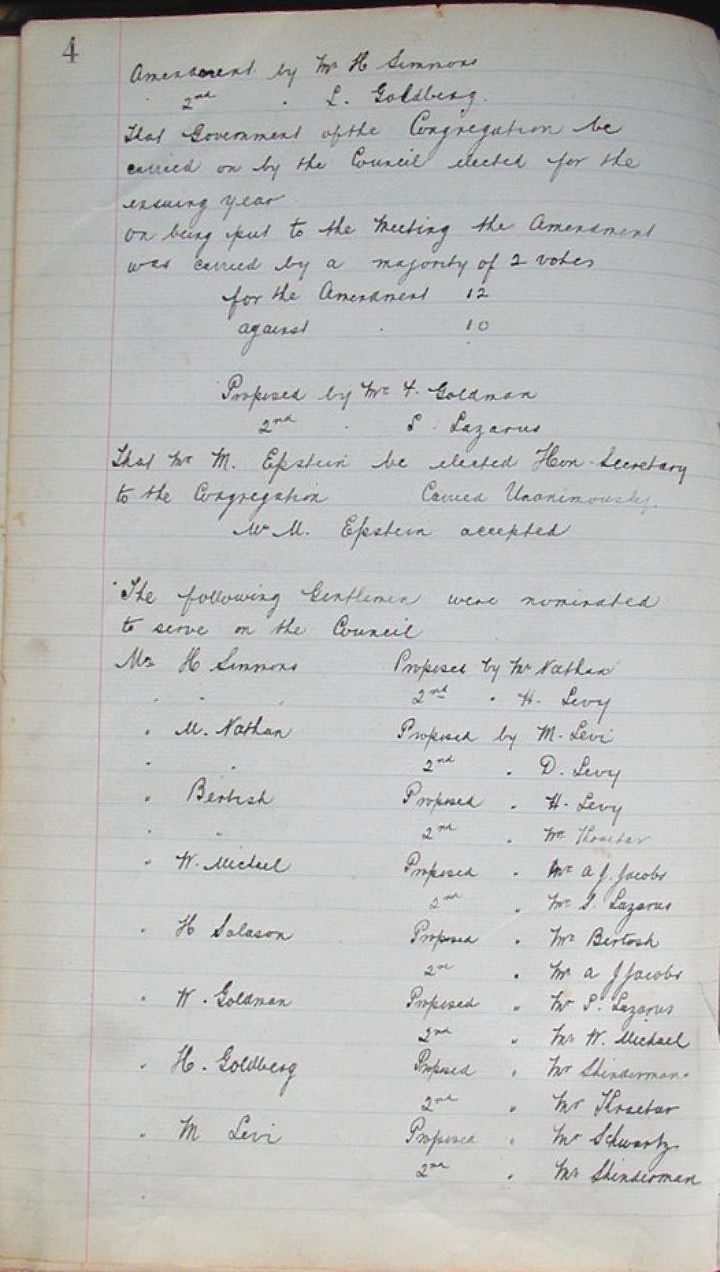 4
Amendment by Mr H Simmons
" 2nd " L. Goldberg.
That Government of the Congregation be
carried on by the Council elected for the
ensuing year
on being put to the Meeting the Amendment
was carried by a majority of 2 votes
for the Amendment 12
against " 10
Proposed by Mr Goldman
2nd " S. Lazarus
That Mr M. Epstein be elected Hon. Secretary
to the Congregation Carried Unanimously.
Mr M. Epstein accepted
The following Gentlemen were nominated
to serve on the Council
Mr H Simmons Proposed by Mr Nathan
" " " 2nd " H. Levy
" M. Nathan Proposed by M. Levi
" " 2nd " D. Levy
" Bertish Proposed " H. Levy
" " 2nd " Mr
" W. Michael Proposed " Mr A. J. Jacobs
2nd " Mr S. Lazarus
" H Solason Proposed " Mr Bertosh
2nd " Mr A J Jacobs
" W. Goldman Proposed " Mr S. Lazarus
2nd " Mr W. Michael
" H. Goldberg Proposed " Mr Shinderman
2nd " Mr
" M Levi Proposed " Mr Schwartz
2nd " Mr Shinderman